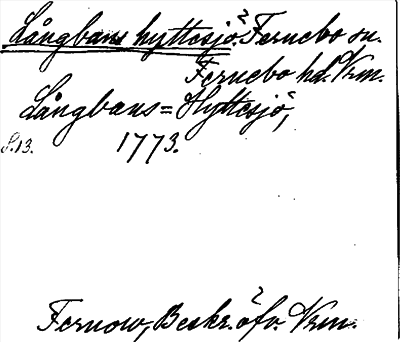 Långbans hyttesjö? Fernebo sn.
Fernebo hd. Vrm.
Långbans=Hyttesjö,
S.13. 1773.
Fernow, Beskr. öfv Vrm.